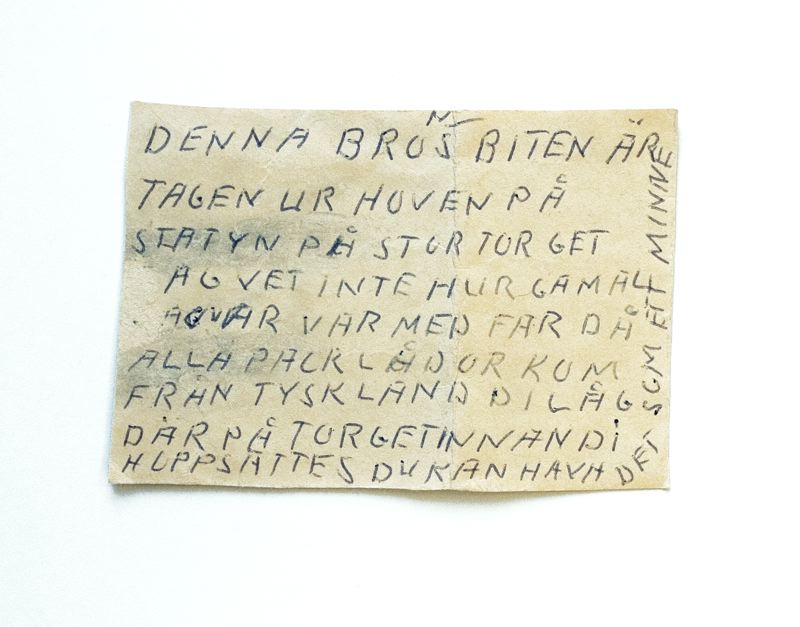 DENNA BRONS BITEN ÄR
TAGEN UR HOVEN PÅ
STATYN PÅ STORTORGET
AG VET INTE HUR GAMAL
AG VAR VAR MED FAR DÅ
ALLA PACKLÅDOR KOM
FRÅN TYSKLAND DI LÅG
DÄR PÅ TORGET INNAN DI
HUPPSATTES DU KAN HAVA
DET SOM ETT MINNE